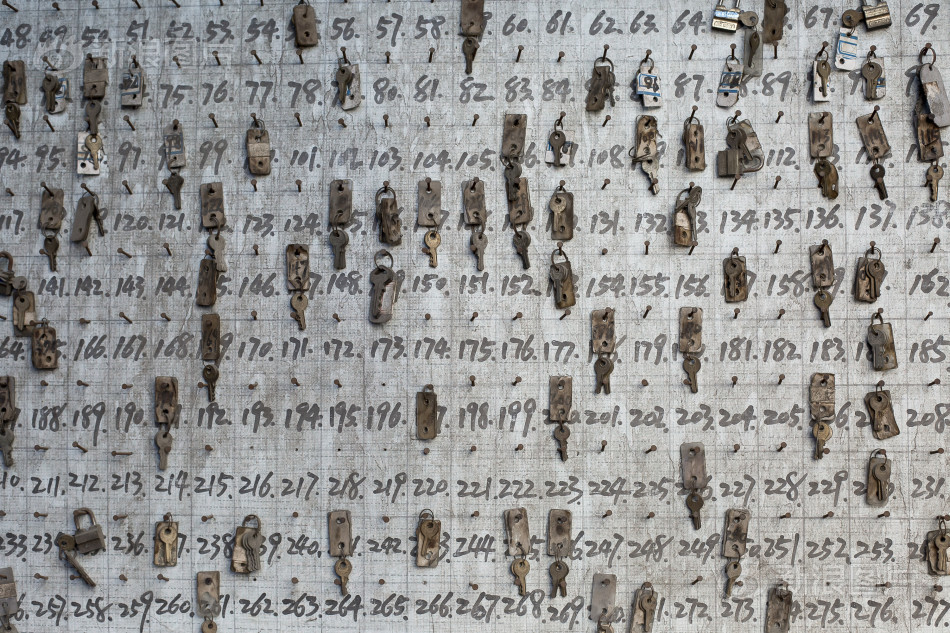 48. 49. 50. 51. 52. 53. 54. 56. 57. 58. 60. 61. 62. 63. 64. 67. 69.
75. 76. 77. 78. 80. 81. 82. 83. 84. 87. 89.
94. 95. 97. 99. 101. 102. 103. 104. 105. 108. 112.
117. 120. 123. 124. 131. 132. 134. 135. 136. 137. 138
141. 142. 143. 144. 146. 148. 150. 151. 152. 154. 155. 156. 158. 162.
166. 167. 168. 170. 171. 172. 173. 174. 175. 176. 177. 179. 181. 182. 183.
188. 189. 190. 192. 193. 194. 195. 196. 198. 199. 201. 202. 203. 204. 205. 208.
210. 211. 212. 213. 214. 215. 216. 217. 218. 219. 220. 221. 222. 223. 224. 225. 227. 228. 229. 231
233. 236. 238. 240. 242. 244. 247. 248. 249. 251. 252. 253.
256. 257. 258. 259. 260. 262. 263. 264. 265. 266. 267. 268. 269. 272. 273. 275. 276. 277